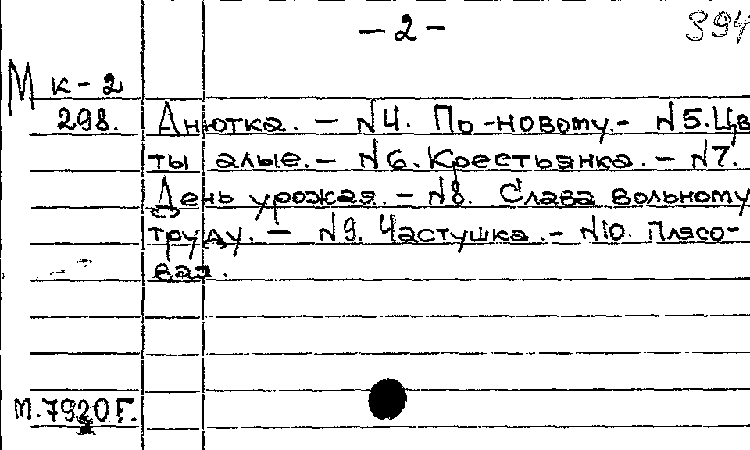 — 2 — 394
М к-2
298. Анютка. — №4. По-новому.- №5. Цв
ты алые. — №6. Крестьянка. — №7.
День урожая. — №8. Слава вольному
труду. — №9. Частушка. — №10. Плясо-
вая.
М. 7920 Г.